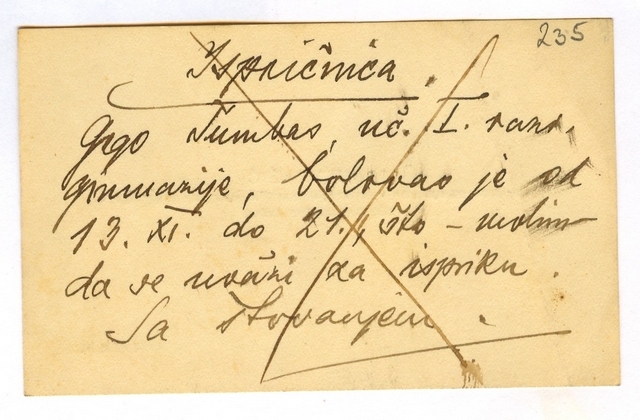 235
Ispričnica.
Grgo Tumbas, uč. I. razr.
gimnazije, bolovao je od
13. XI. do 21., što – molim
da se uvaži za ispriku.
Sa štovanjem